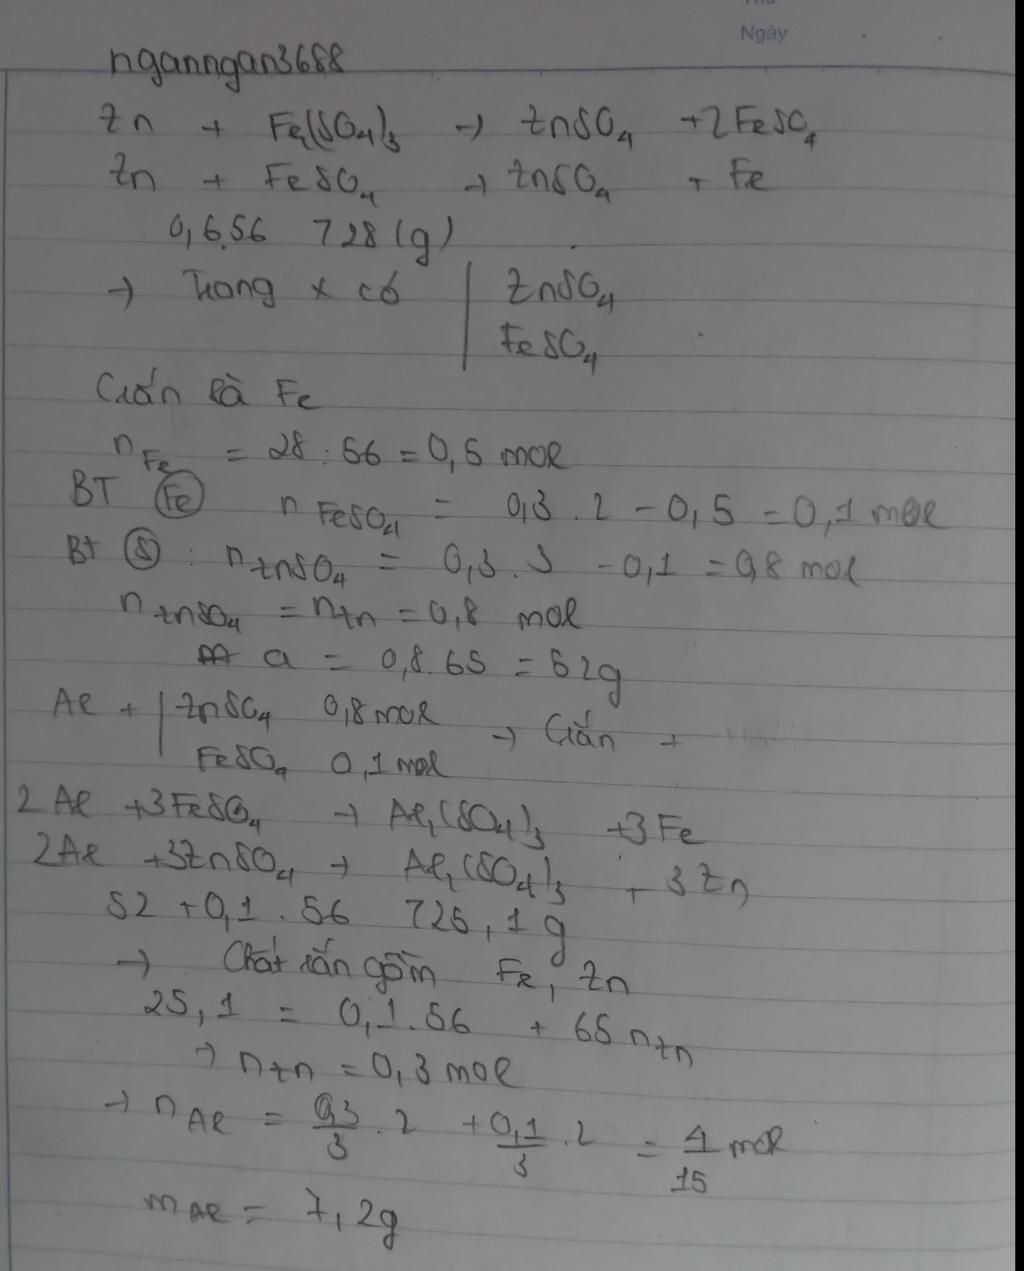 Ngày
nganngan3688
Zn + Fe₂(SO₄)₃ → ZnSO₄ + 2FeSO₄
Zn + FeSO₄ → ZnSO₄ + Fe
0,6.56 > 28 (g)
→ Trong x có | ZnSO₄
FeSO₄
Crắn là Fe
nFe = 28 : 56 = 0,5 mol
BT Fe nFeSO₄ = 0,3 . 2 - 0,5 = 0,1 mol
BT S : nZnSO₄ = 0,3 . 3 - 0,1 = 0,8 mol
nZnSO₄ = nZn = 0,8 mol
a = 0,8.65 = 52g
Al + | ZnSO₄ 0,8 mol → Crắn +
FeSO₄ 0,1 mol
2Al + 3FeSO₄ → Al₂(SO₄)₃ + 3Fe
2Al + 3ZnSO₄ → Al₂(SO₄)₃ + 3Zn
52 + 0,1 . 56 > 25,1 g
→ Chất rắn gồm Fe, Zn
25,1 = 0,1.56 + 65 nZn
→ nZn = 0,3 mol
→ nAl = 0,3/3 . 2 + 0,1/3 . 2 = 4/15 mol
mAl = 7,2g